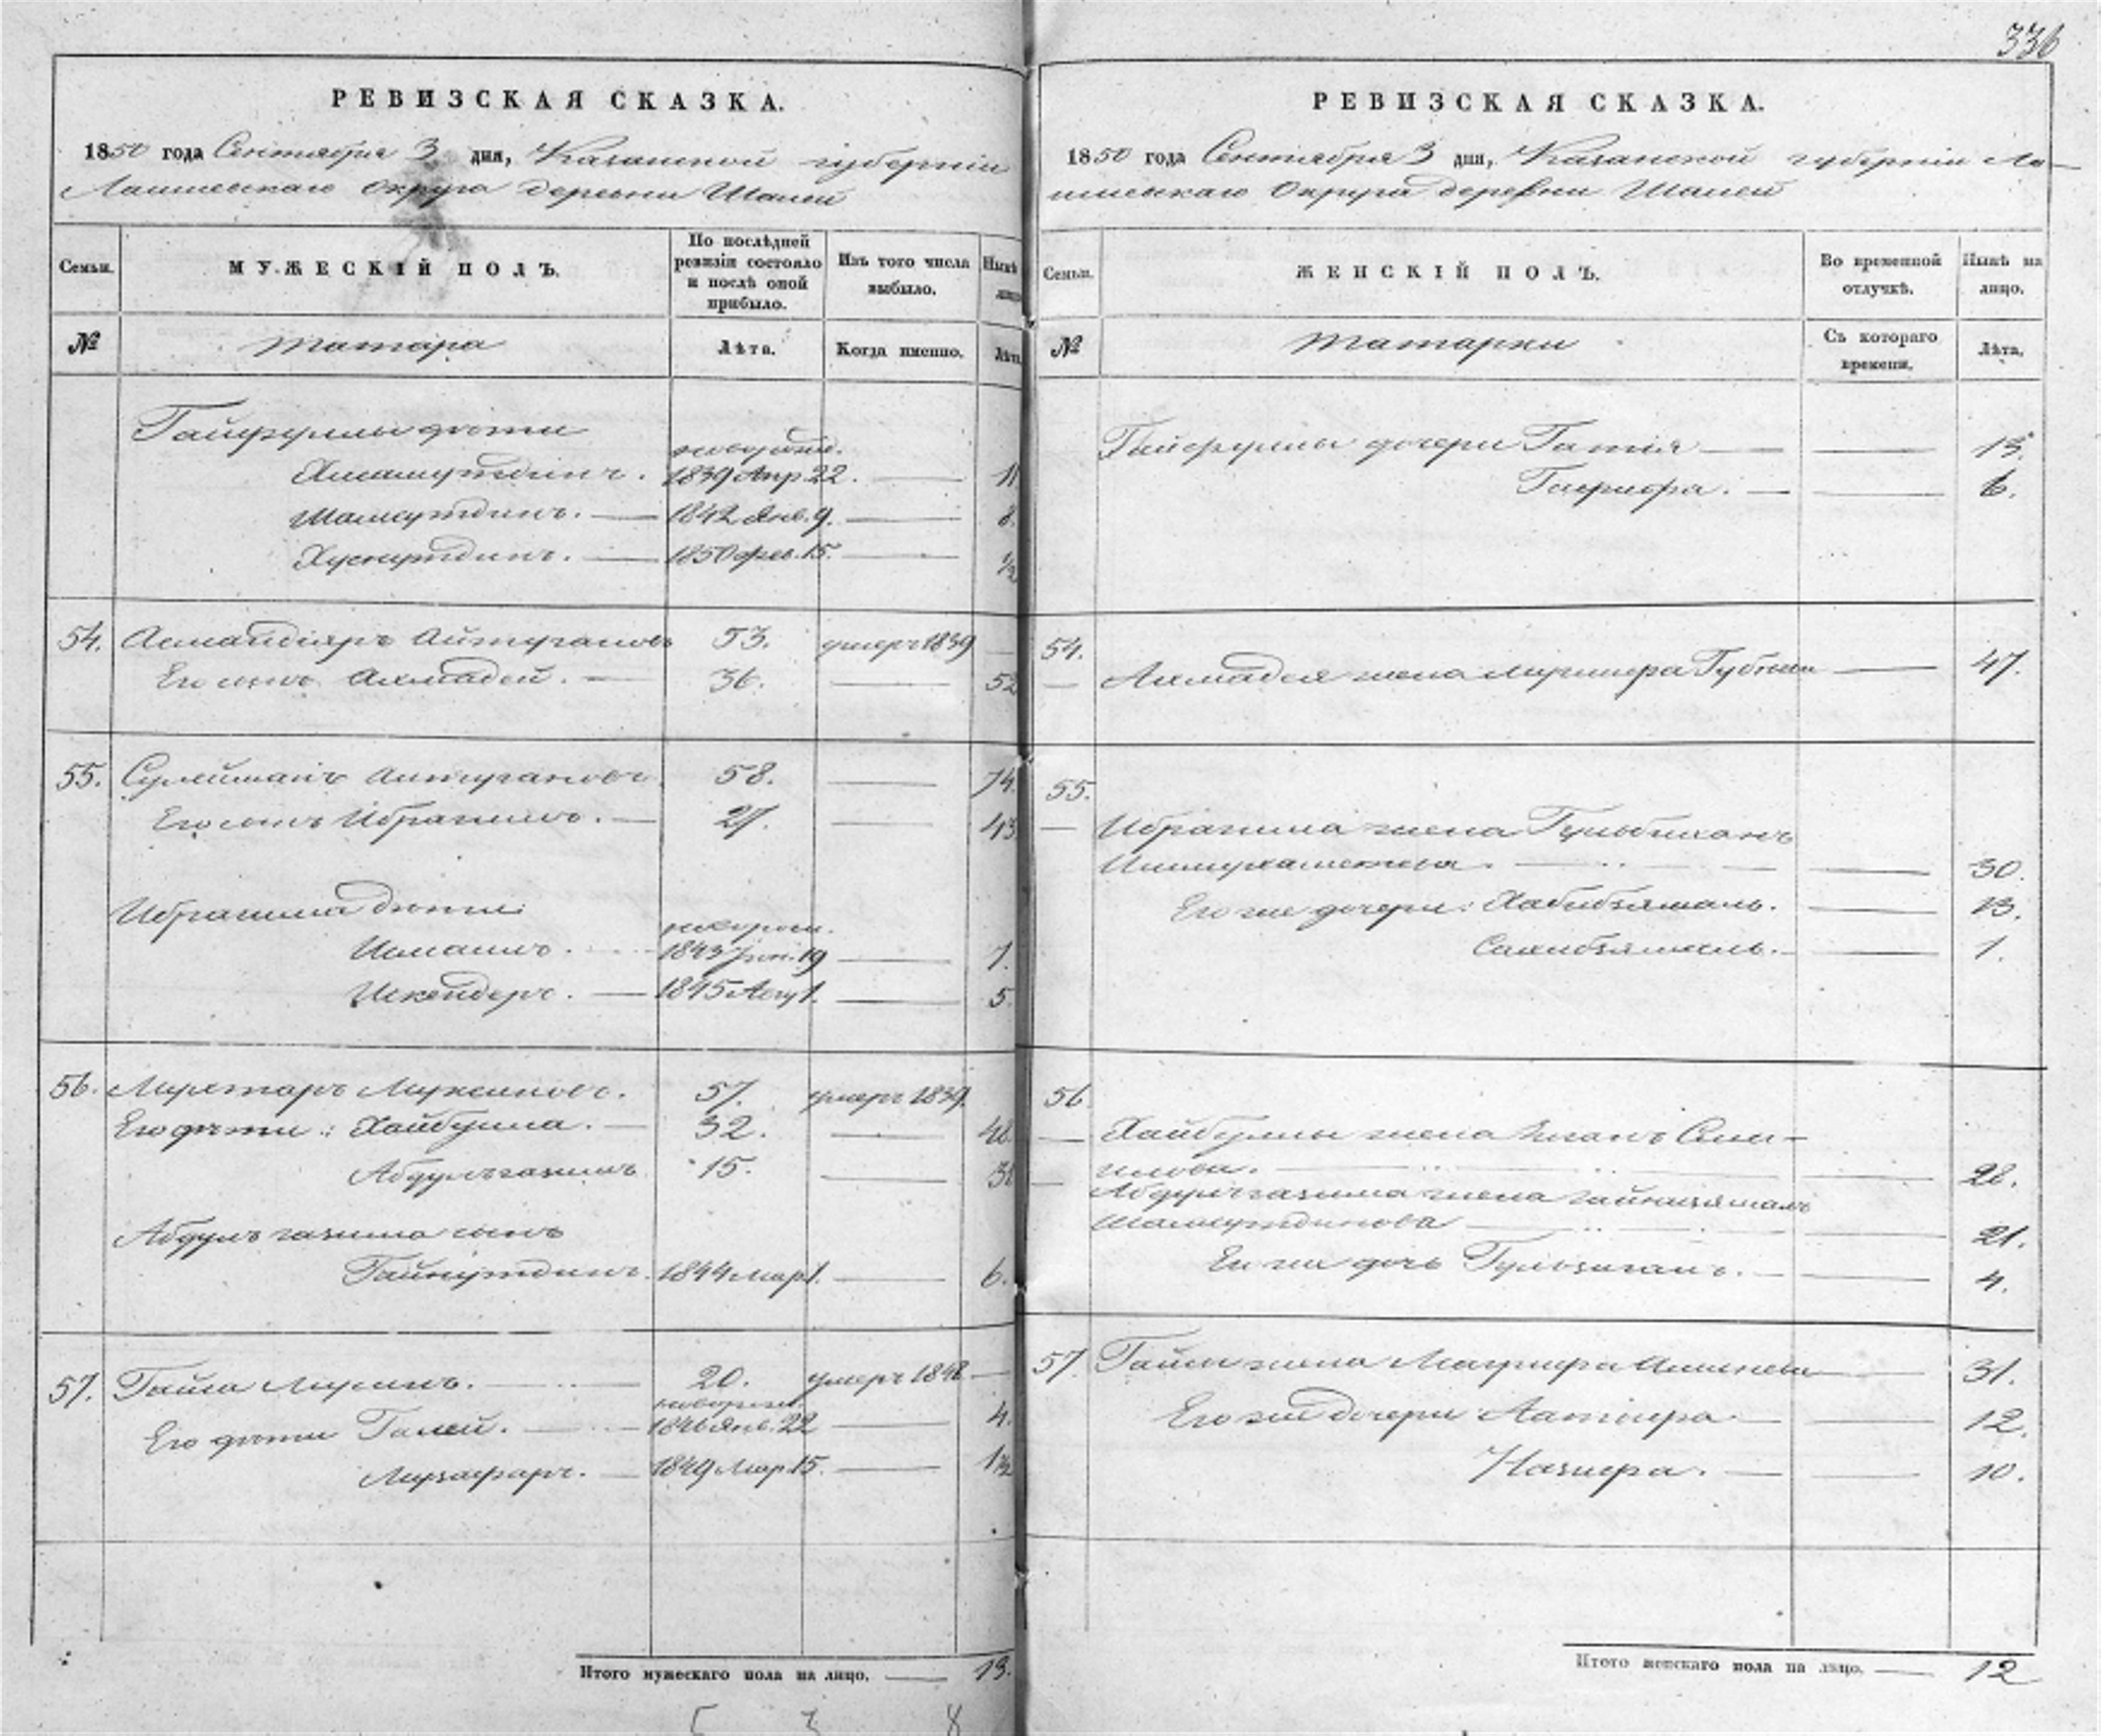 336
РЕВИЗСКАЯ СКАЗКА.
1850 года Сентября 3 дня, Казанской губернiи
Лаишевскаго Округа деревни Шалей
Семьи.
МУЖЕСКIЙ ПОЛЪ.
По послѣдней ревизiи состояло и послѣ оной прибыло.
Изъ того числа выбыло.
Нынѣ
№
татара
Лѣта.
Когда именно.
Лѣта
Гайфуллы дѣти
новорожд.
1839 Апр 22. — 11
Шамсутдинъ. — 1842 Янв. 9. — 8.
Хуснутдинъ. — 1850 фев. 15. — ½
54. Асмандіяръ Айтугановъ 53. умеръ 1839 —
Его сынъ Ахмадей. — 36. — 52
55. Сулейманъ Аитугановъ 58. — 74.
Его сынъ Ибрагимъ. — 27. — 43
Ибрагима дѣти:
новорож.
Исмаилъ. 1843 Iюн. 19 — 7.
Искендеръ. — 1845 Авгу 1. — 5.
56. Мухтаръ Муксиновъ. 57. умеръ 1839.
Его дѣти: Хайбулла. — 32. — 48
Абдулъгазимъ 15. — 31
Абдулъ газима сынъ
Гайнутдинъ. 1844 мар 1. — 6.
57. 20. умеръ 1848 —
новорож.
Его дѣти Галей. — 1846 Янв. 22 — 4.
Музафаръ. — 1849 Мар. 15. — 1½
Итого мужескаго пола на лицо. — 13.
РЕВИЗСКАЯ СКАЗКА.
1850 года Сентября 3 дня, Казанской губернiи Ла-
ишевскаго Округа деревни Шалей
Семьи.
ЖЕНСКIЙ ПОЛЪ.
Во временной отлучкѣ.
Нынѣ на лицо.
№
татарки
Съ котораго времени.
Лѣта.
Гайфуллы дочери Гатiя — — 13.
— — 6.
54.
— Ахмадея жена — 47.
55.
— Ибрагима жена
Ишмухаметева. — — 30.
Его же дочери: Хабибзямалъ. — 13.
Сахибзямалъ. — — 1.
56
— Хайбуллы жена
— 28.
— Абдулгазима жена
Шамсутдинова — — 21.
Ея же дочь — — 4.
57. жена — 31.
Его же дочери — — 12.
Назифа. — — 10.
Итого женскаго пола на лицо. — 12
5 3 8